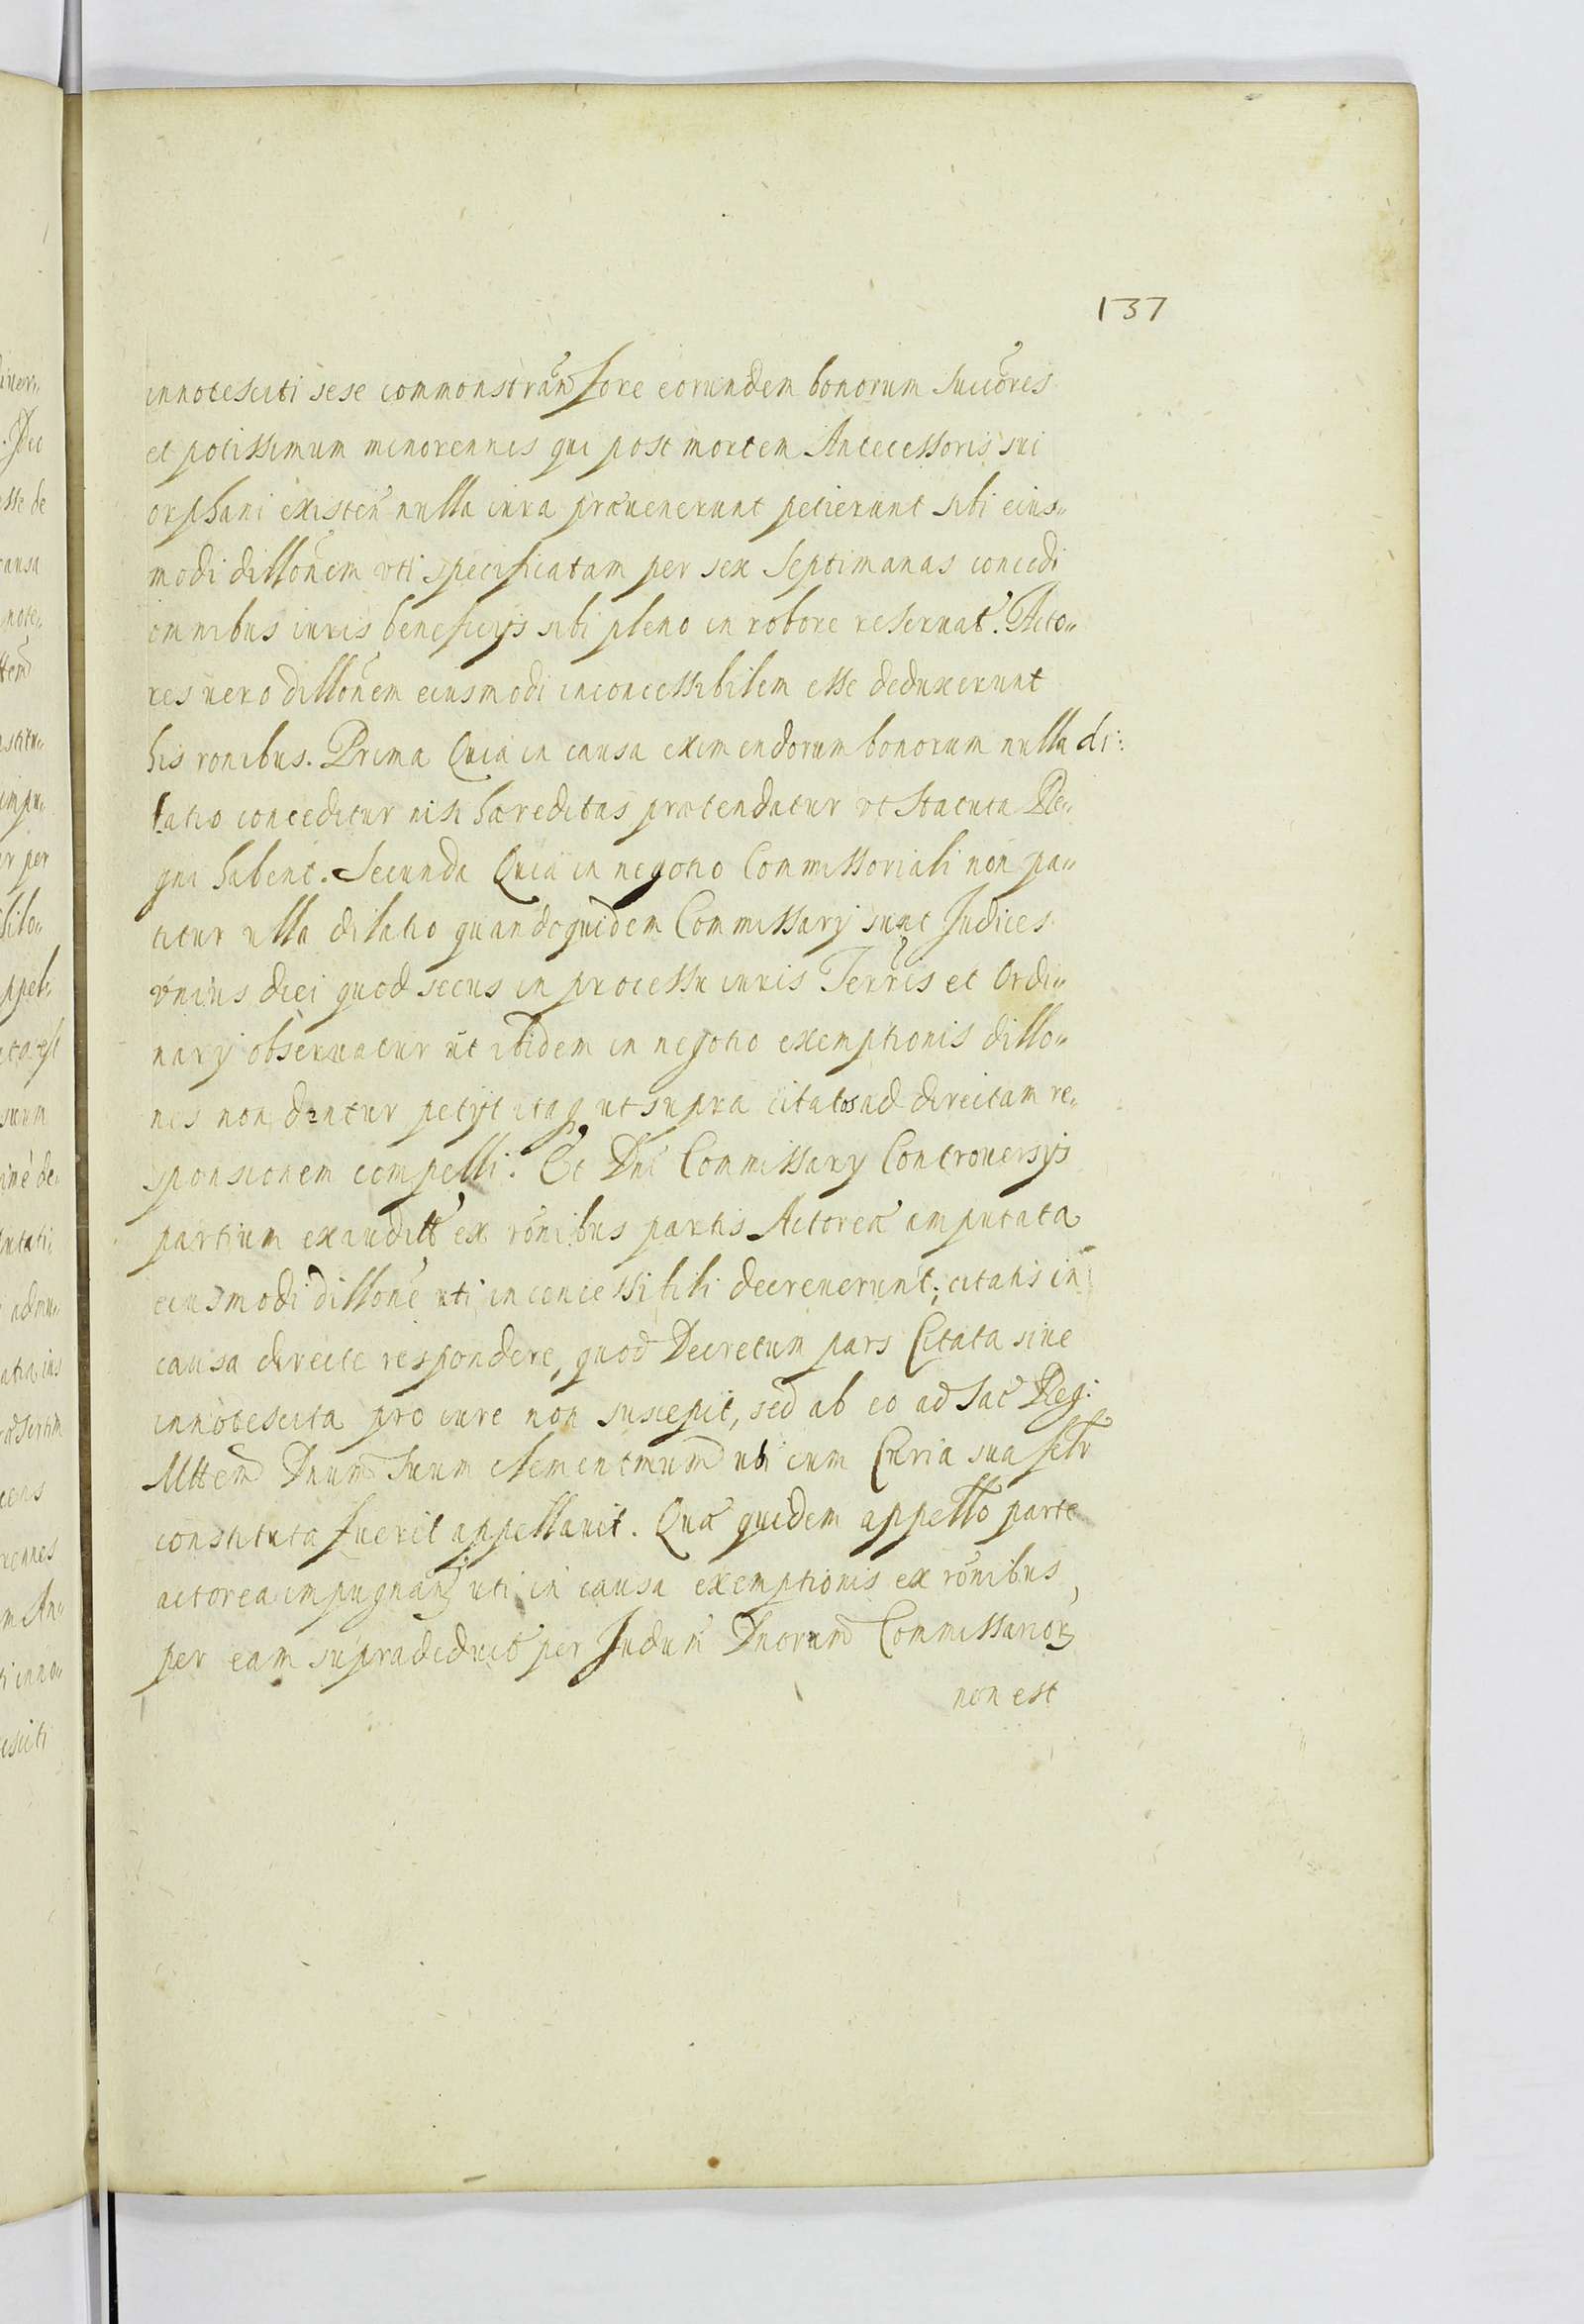 137
innotesciti sese commonstrañ fore eorundem bonorum succõres
et potissimum minorennes qui post mortem Antecessoris sui
orphani existeñ nulla iura præuenerunt petierunt sibi eius„
modi dillõnem vti specificatam per sex septimanas concedi
omnibus iuris beneficijs sibi pleno in robore reseruat̃. Acto„
res uero dillõnem eiusmodi inconcessibilem esse deduxerunt
his ronibus. Prima Quia in causa eximendorum bonorum nulla di:
latio conceditur nisi hæreditas prætendatur vt Statuta Re„
gni habent. Secunda Quia in negotio Commissoriali non pa„
titur ulla dilatio quandoquidem Commissarij sunt Judices
vnius diei quod secus in processu iuris Terr̃is et Ordi„
narij obseruatur ut ibidem in negotio exemptionis dillo„
nes non dantur petijt itaq ut supra citatos ad directam re„
sponsionem compelli. Et Dni Commissarij Controuersijs
partium exaudit̃ ex rõnibus partis Actoreæ amputata
eiusmodi dillonẽ uti inconcessibili decreuerunt; citatis in
causa directe respondere, quod Decretum pars Citata siue
innotescita pro iure non suscepit, sed ab eo ad Sac̃ Reg:
Mttem Dnum Suum clementmum ubi cum Curia sua fclr
constituta fuerit appellauit. Qua quidem appello parte
actorea impugnañ uti in causa exemptionis ex rõnibus
per eam supradeduct̃ per Judum Dnorum Commissarior
non est